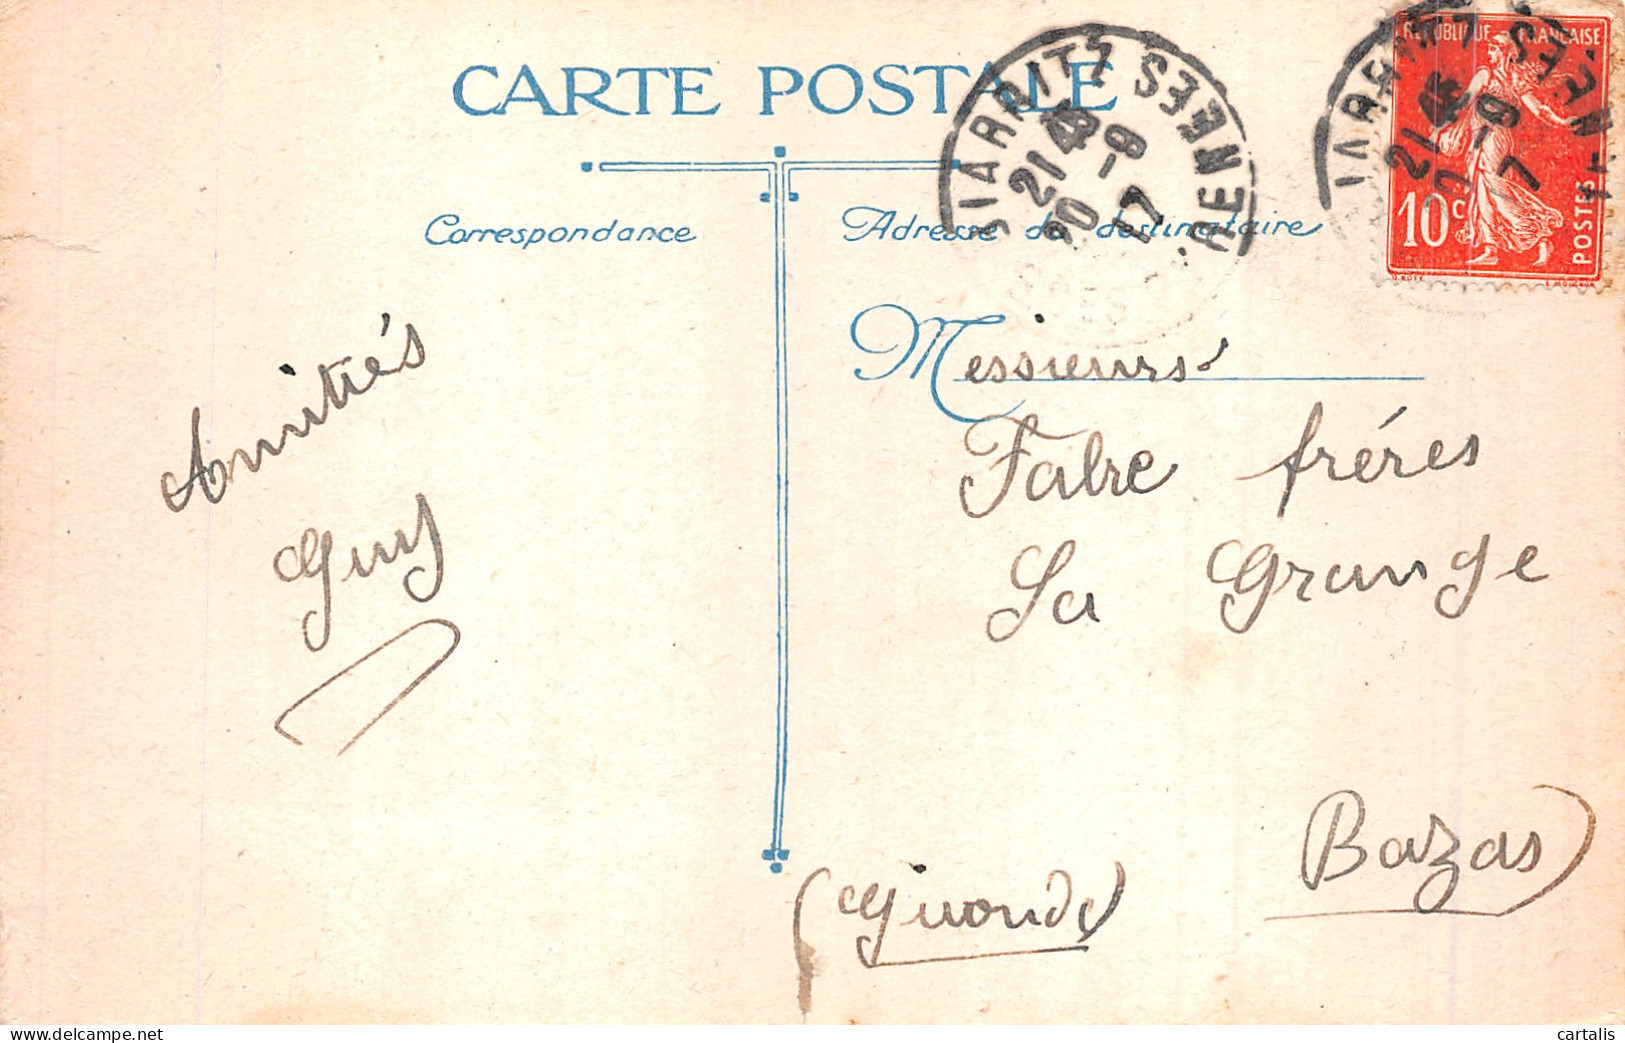 CARTE POSTALE
Correspondance
Adresse du destinataire
BIARRITZ
21 45
20-9
17
RÉPUBLIQUE FRANÇAISE
10c
POSTES
O. ROTY
E. MOUCHON
Amitiés
Guy
Messieurs
Fabre fréres
La Grange
Bazas
(Gironde)
cartalis